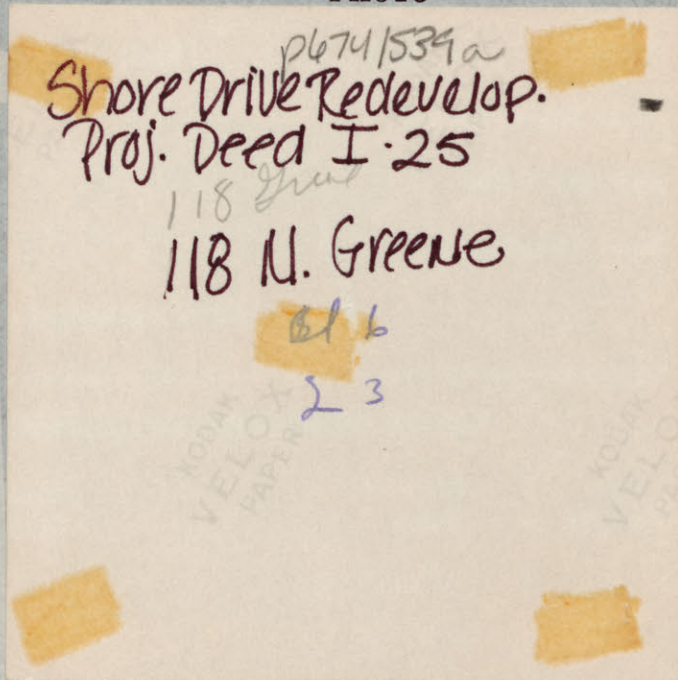 p6741539a
Shore Drive Redevelop.
Proj. Deed I-25
118
118 N. Greene
Bl 6
L 3
KODAK
VELOX
PAPER
KODAK
VELOX